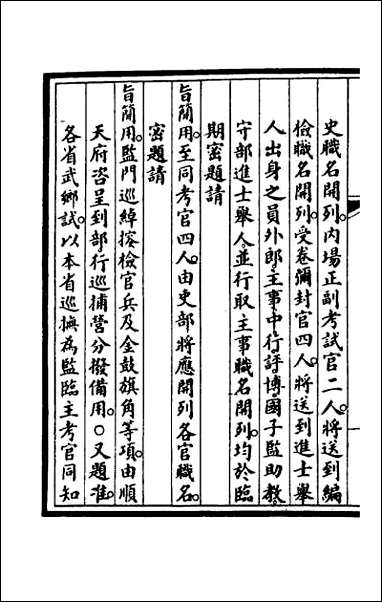 史職名開列。內場正副考試官二人。將送到編
檢職名開列。受卷彌封官四人。將送到進士舉
人出身之員外郎。主事。中。行。評。博。國子監助教。
守部進士舉人。並行取主事職名開列。均於臨
期密題請
旨簡用。至同考官四人。由吏部將應開列各官職名。
密題請
旨簡用。監門巡綽搜檢官兵及金鼓旗角等項。由順
天府咨呈到部。行巡捕營分撥備用。○又題准。
各省武鄉試。以本省巡撫為監臨主考官。同知